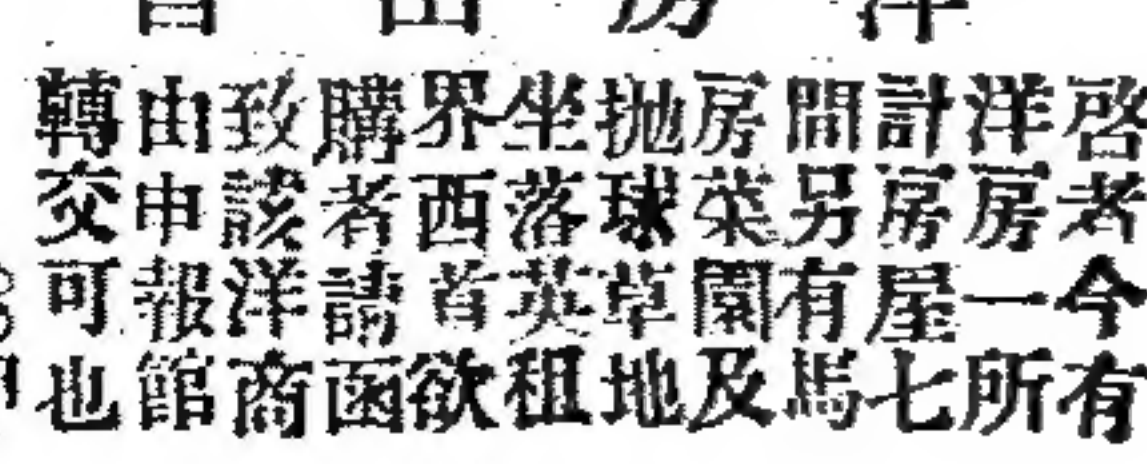 洋房出售
啓者今有
洋房一所
計房屋七
間另有馬
房菜園及
抛球草地
坐落英租
界西首欲
購者請函
致該洋商
由申報館
轉交可也